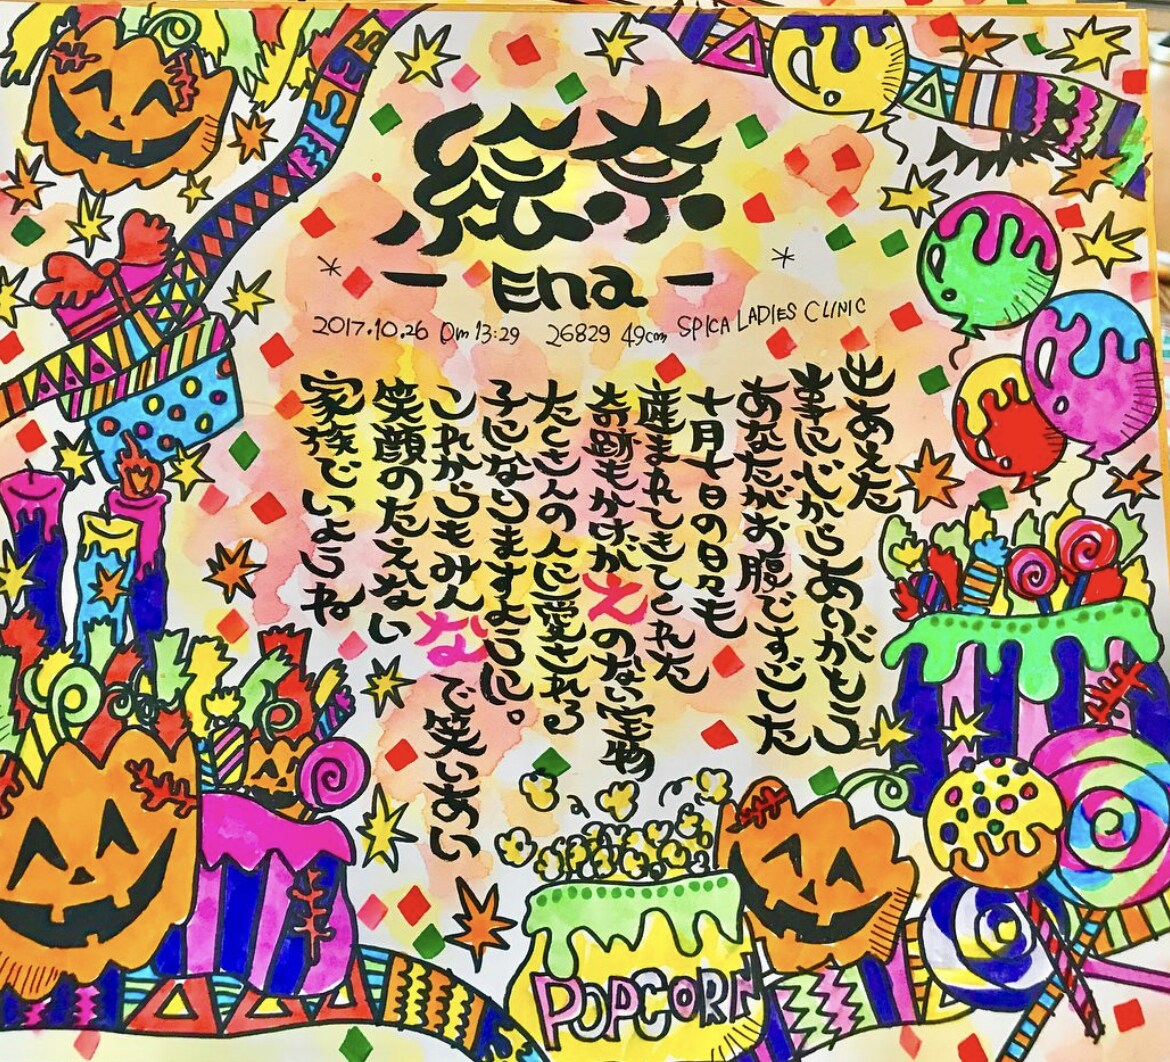 絵奈
- Ena -
2017.10.26 Pm 13:29 2682g 49cm SPICA LADIES CLINIC
出あえた
事に心からありがとう
あなたがお腹ですごした
十月十日の日々も
産まれてきてくれた
奇跡もかけがえのない宝物
たくさんの人に愛される
子になりますように。
これからもみんなで笑いあい
笑顔のたえない
家族でいようね
POPCORN